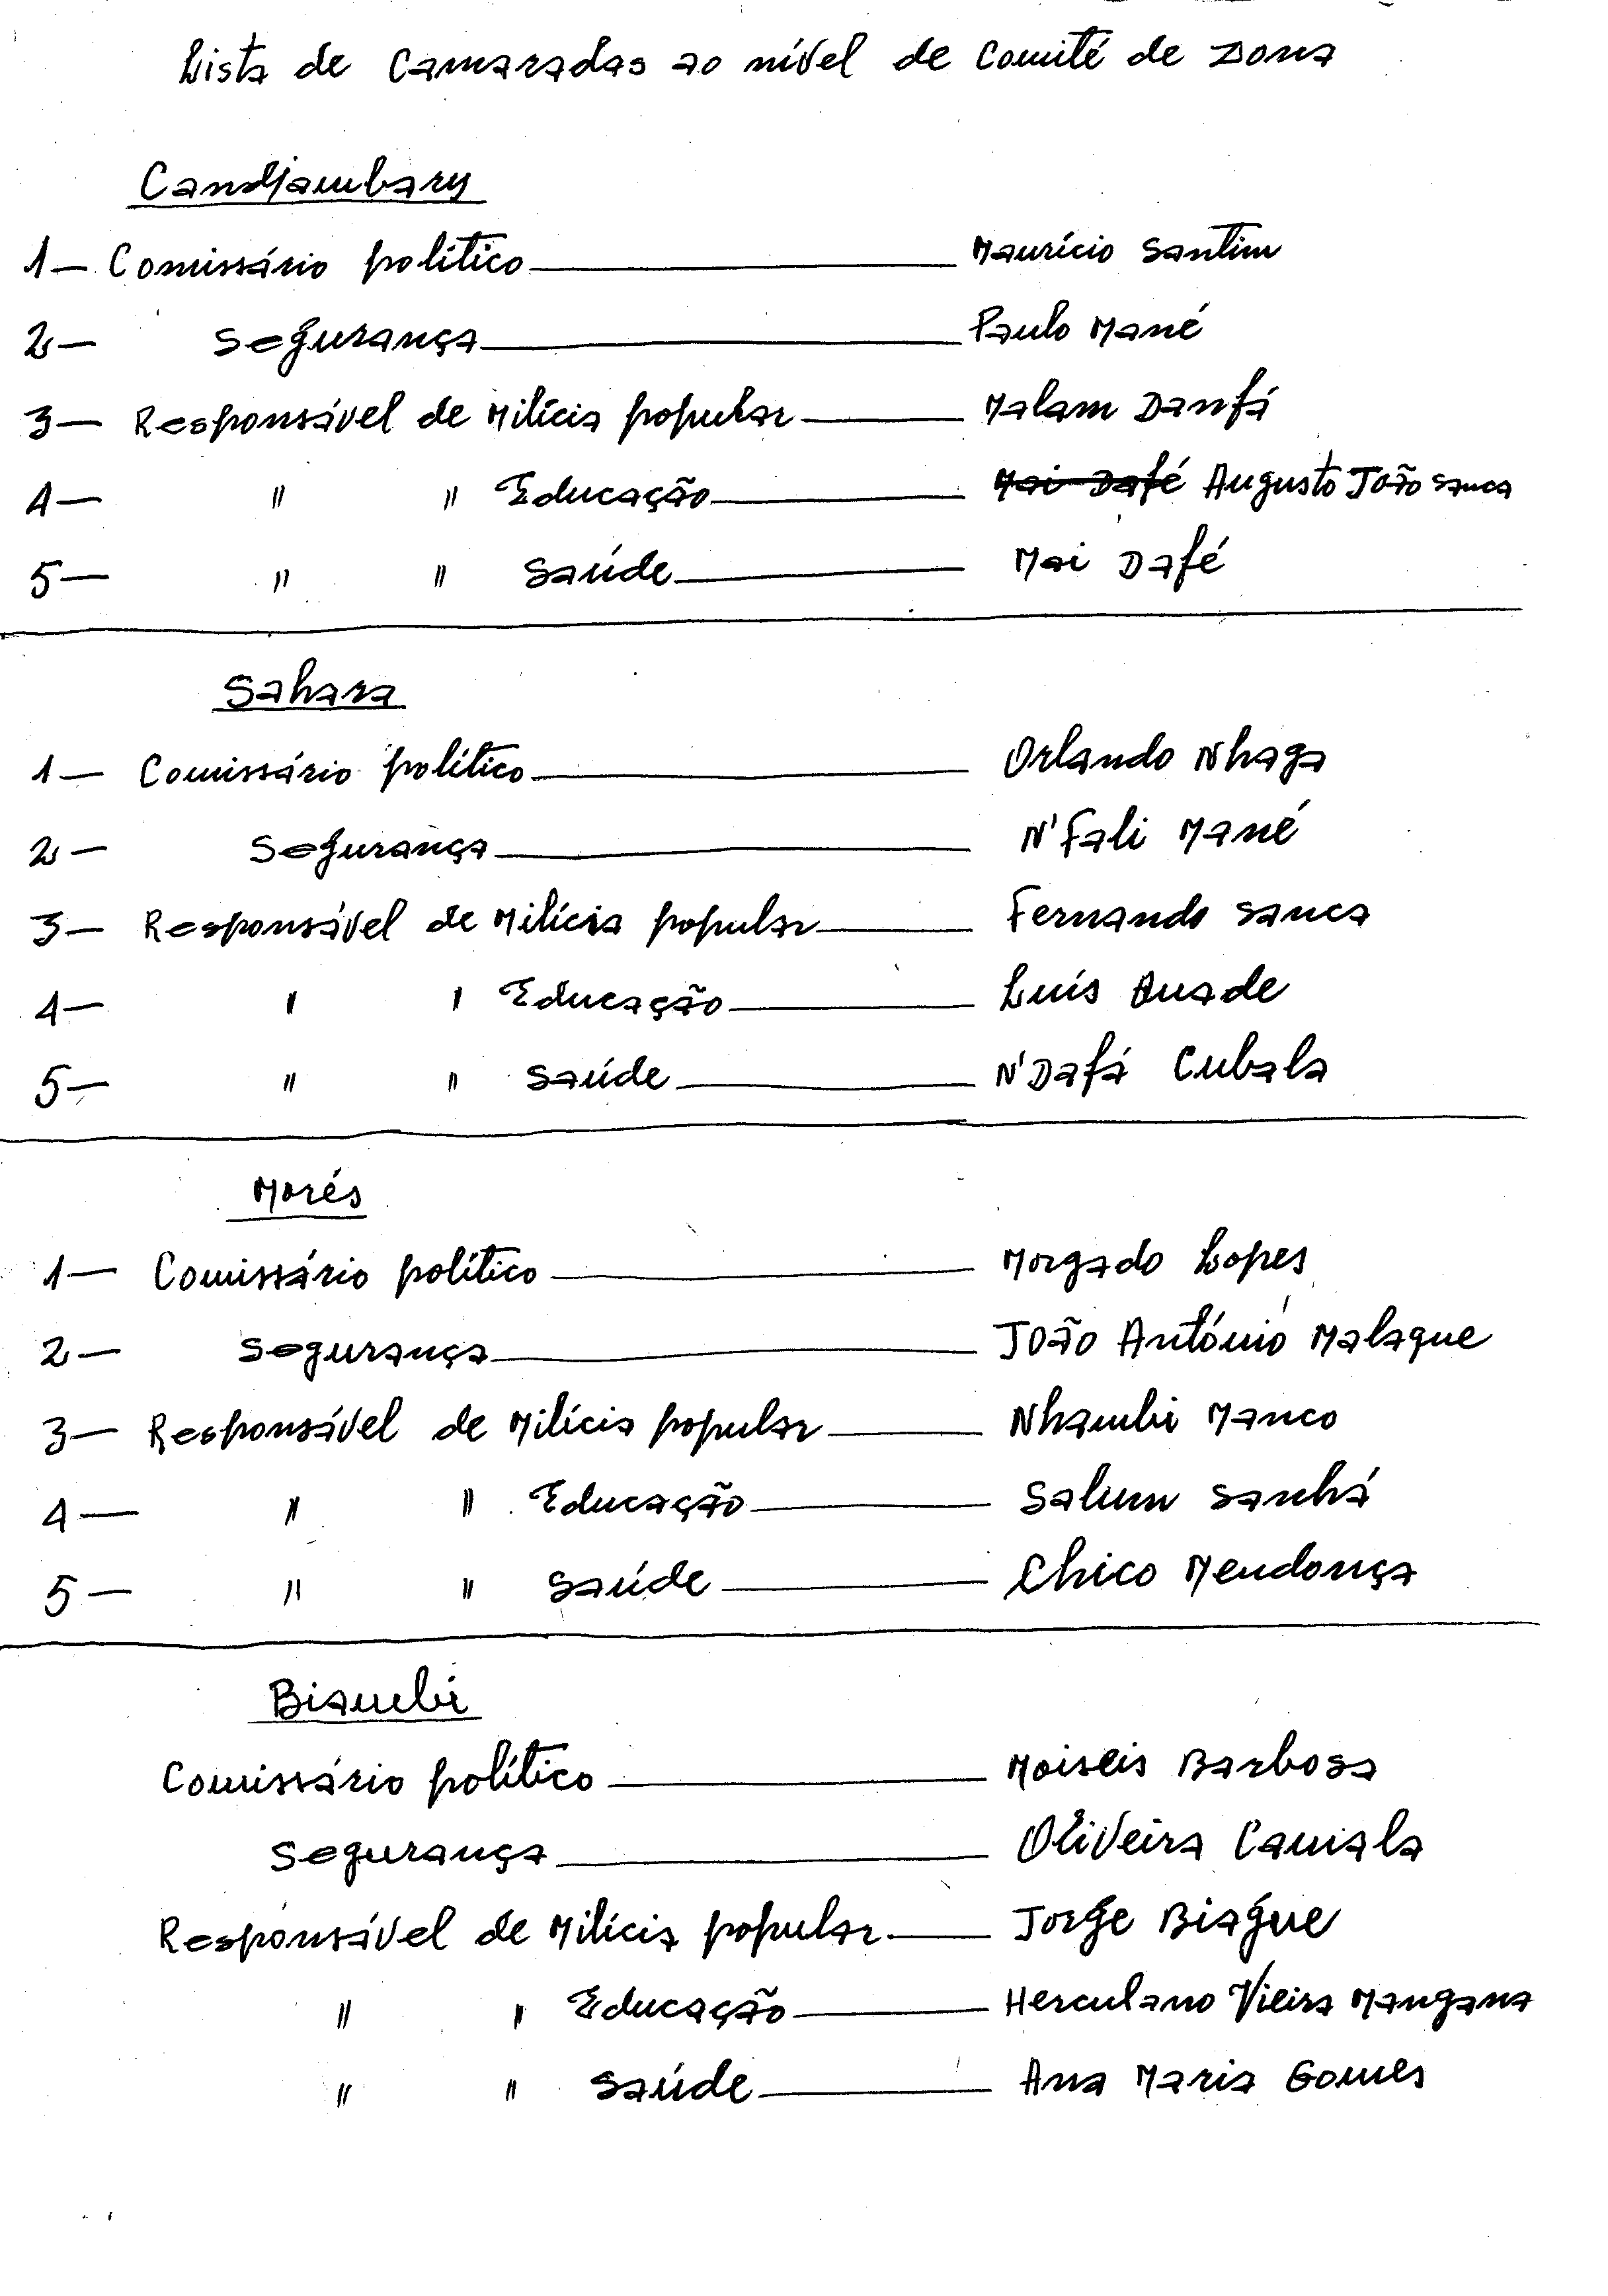 Lista de Camaradas ao nível de Comité de Zona
Candjambary
1— Comissário político — Maurício Santim
2— Segurança — Paulo Mané
3— Responsável de Milícia popular — Malam Danfá
4— " " Educação — Mai Dafé Augusto João Sanca
5— " " Saúde — Mai Dafé
Sahara
1— Comissário político — Orlando Nhaga
2— Segurança — N'Fali Mané
3— Responsável de Milícia popular — Fernando Sanca
4— " " Educação — Luís Quade
5— " " Saúde — N'Dafá Cubala
Morés
1— Comissário político — Morgado Lopes
2— Segurança — João António Malaque
3— Responsável de Milícia popular — Nhambi Manco
4— " " Educação — Salum Sanhá
5— " " Saúde — Chico Mendonça
Biambi
Comissário político — Moiseis Barbosa
Segurança — Oliveira Camala
Responsável de Milícia popular — Jorge Biágue
" " Educação — Herculano Vieira Mangana
" " Saúde — Ana Maria Gomes